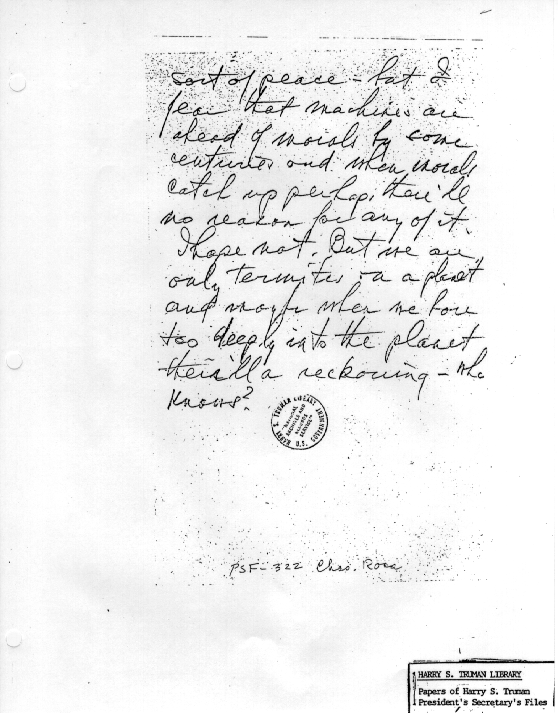 sort of peace - but I
fear that machines are
ahead of morals by some
centuries and when morals
catch up perhaps there'll
no reason for any of it.
I hope not. But we are
only termites on a planet
and maybe when we bore
too deeply into the planet
there'll a reckoning - who
knows?
HARRY S. TRUMAN LIBRARY
"NATIONAL
ARCHIVES AND
RECORDS
SERVICE"
U.S.
PSF-322 Chas. Ross
HARRY S. TRUMAN LIBRARY
Papers of Harry S. Truman
President's Secretary's Files